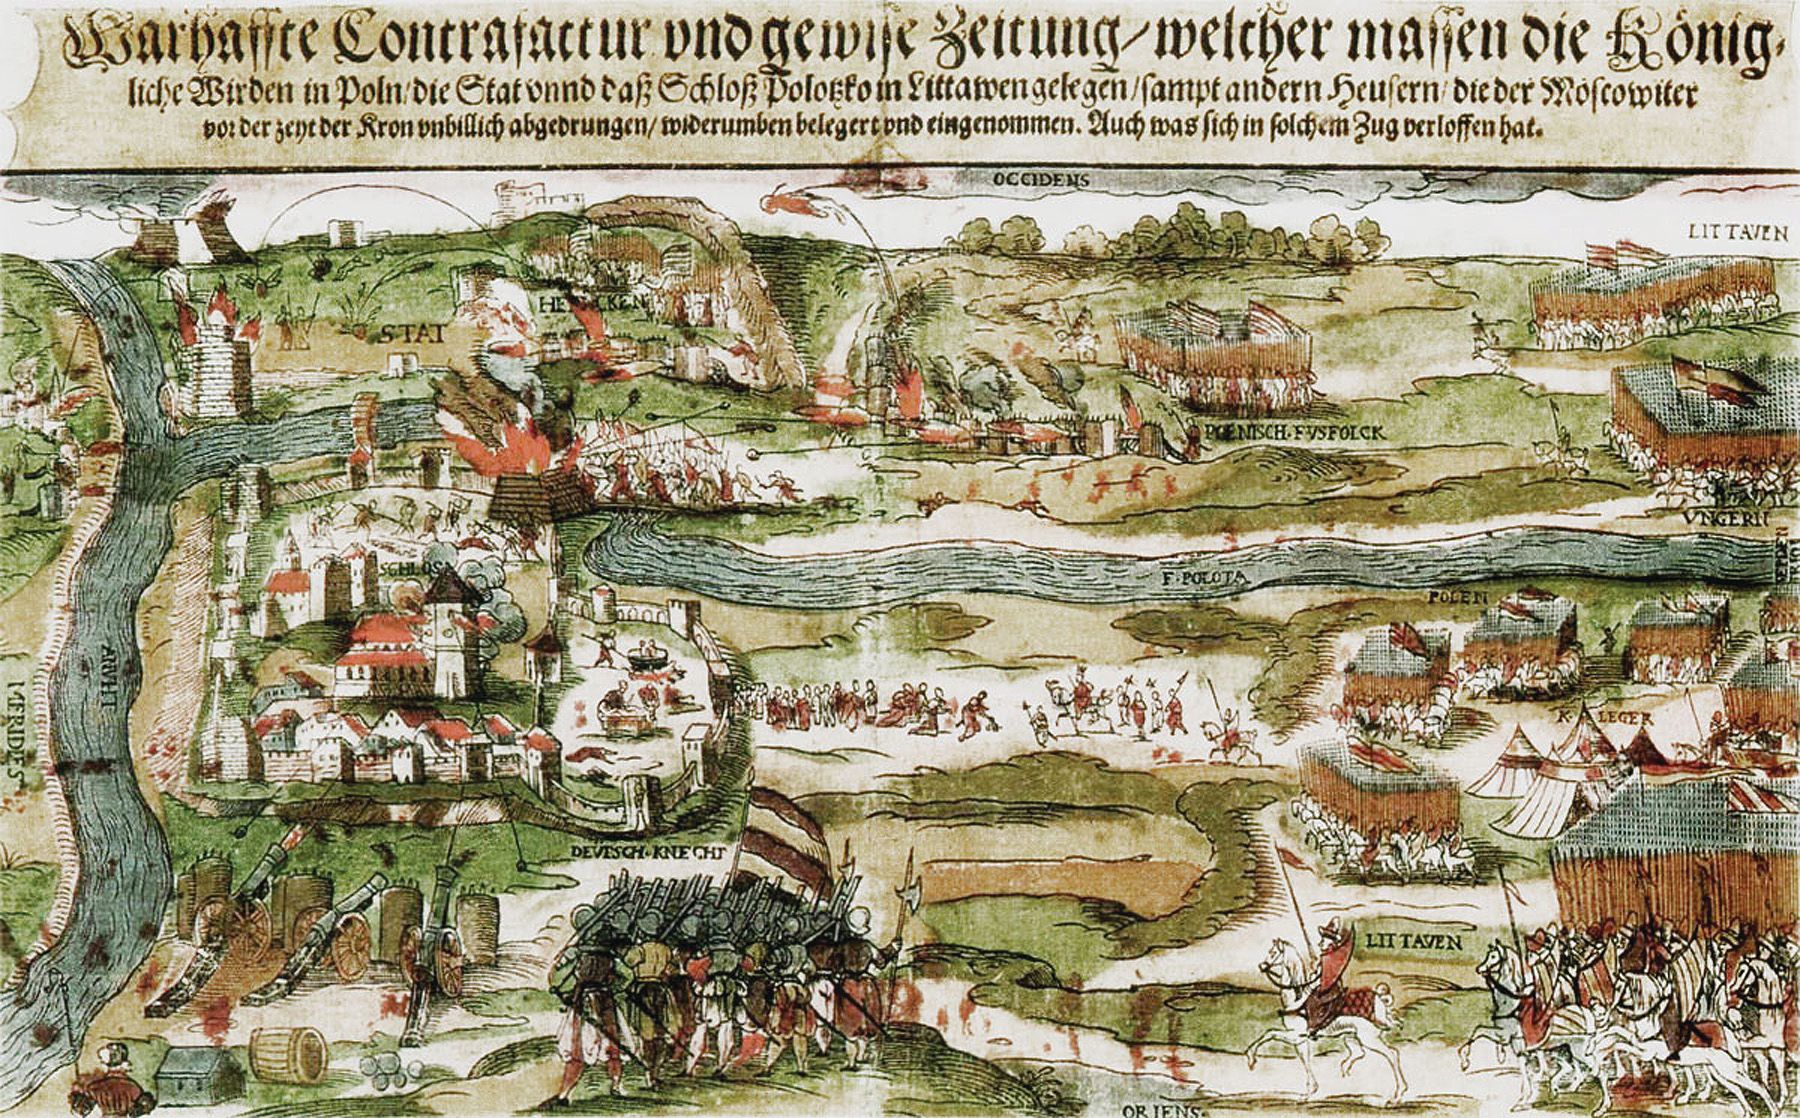 Warhaffte Contrafactur vnd gewisse Zeitung/ welcher massen die König-
liche Wirden in Poln/ die Stat vnnd daß Schloß Polotzko in Littawen gelegen/ sampt andern Heusern/ die der Moscowiter
vor der zeyt der Kron vnbillich abgedrungen/ widerumben belegert vnd eingenommen. Auch was sich in solchem Zug verloffen hat.
OCCIDENS
LITTAVEN
STAT
POLNISCH·FVSFOLCK
VNGERN
SCHLOS
F·POLOTA
POLEN
MERIDES
K LEGER
DEVTSCH·KNECHT
LITTAVEN
ORIENS·